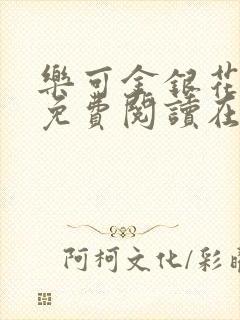 樂可金銀花
免費閱讀在
阿柯文化/彩